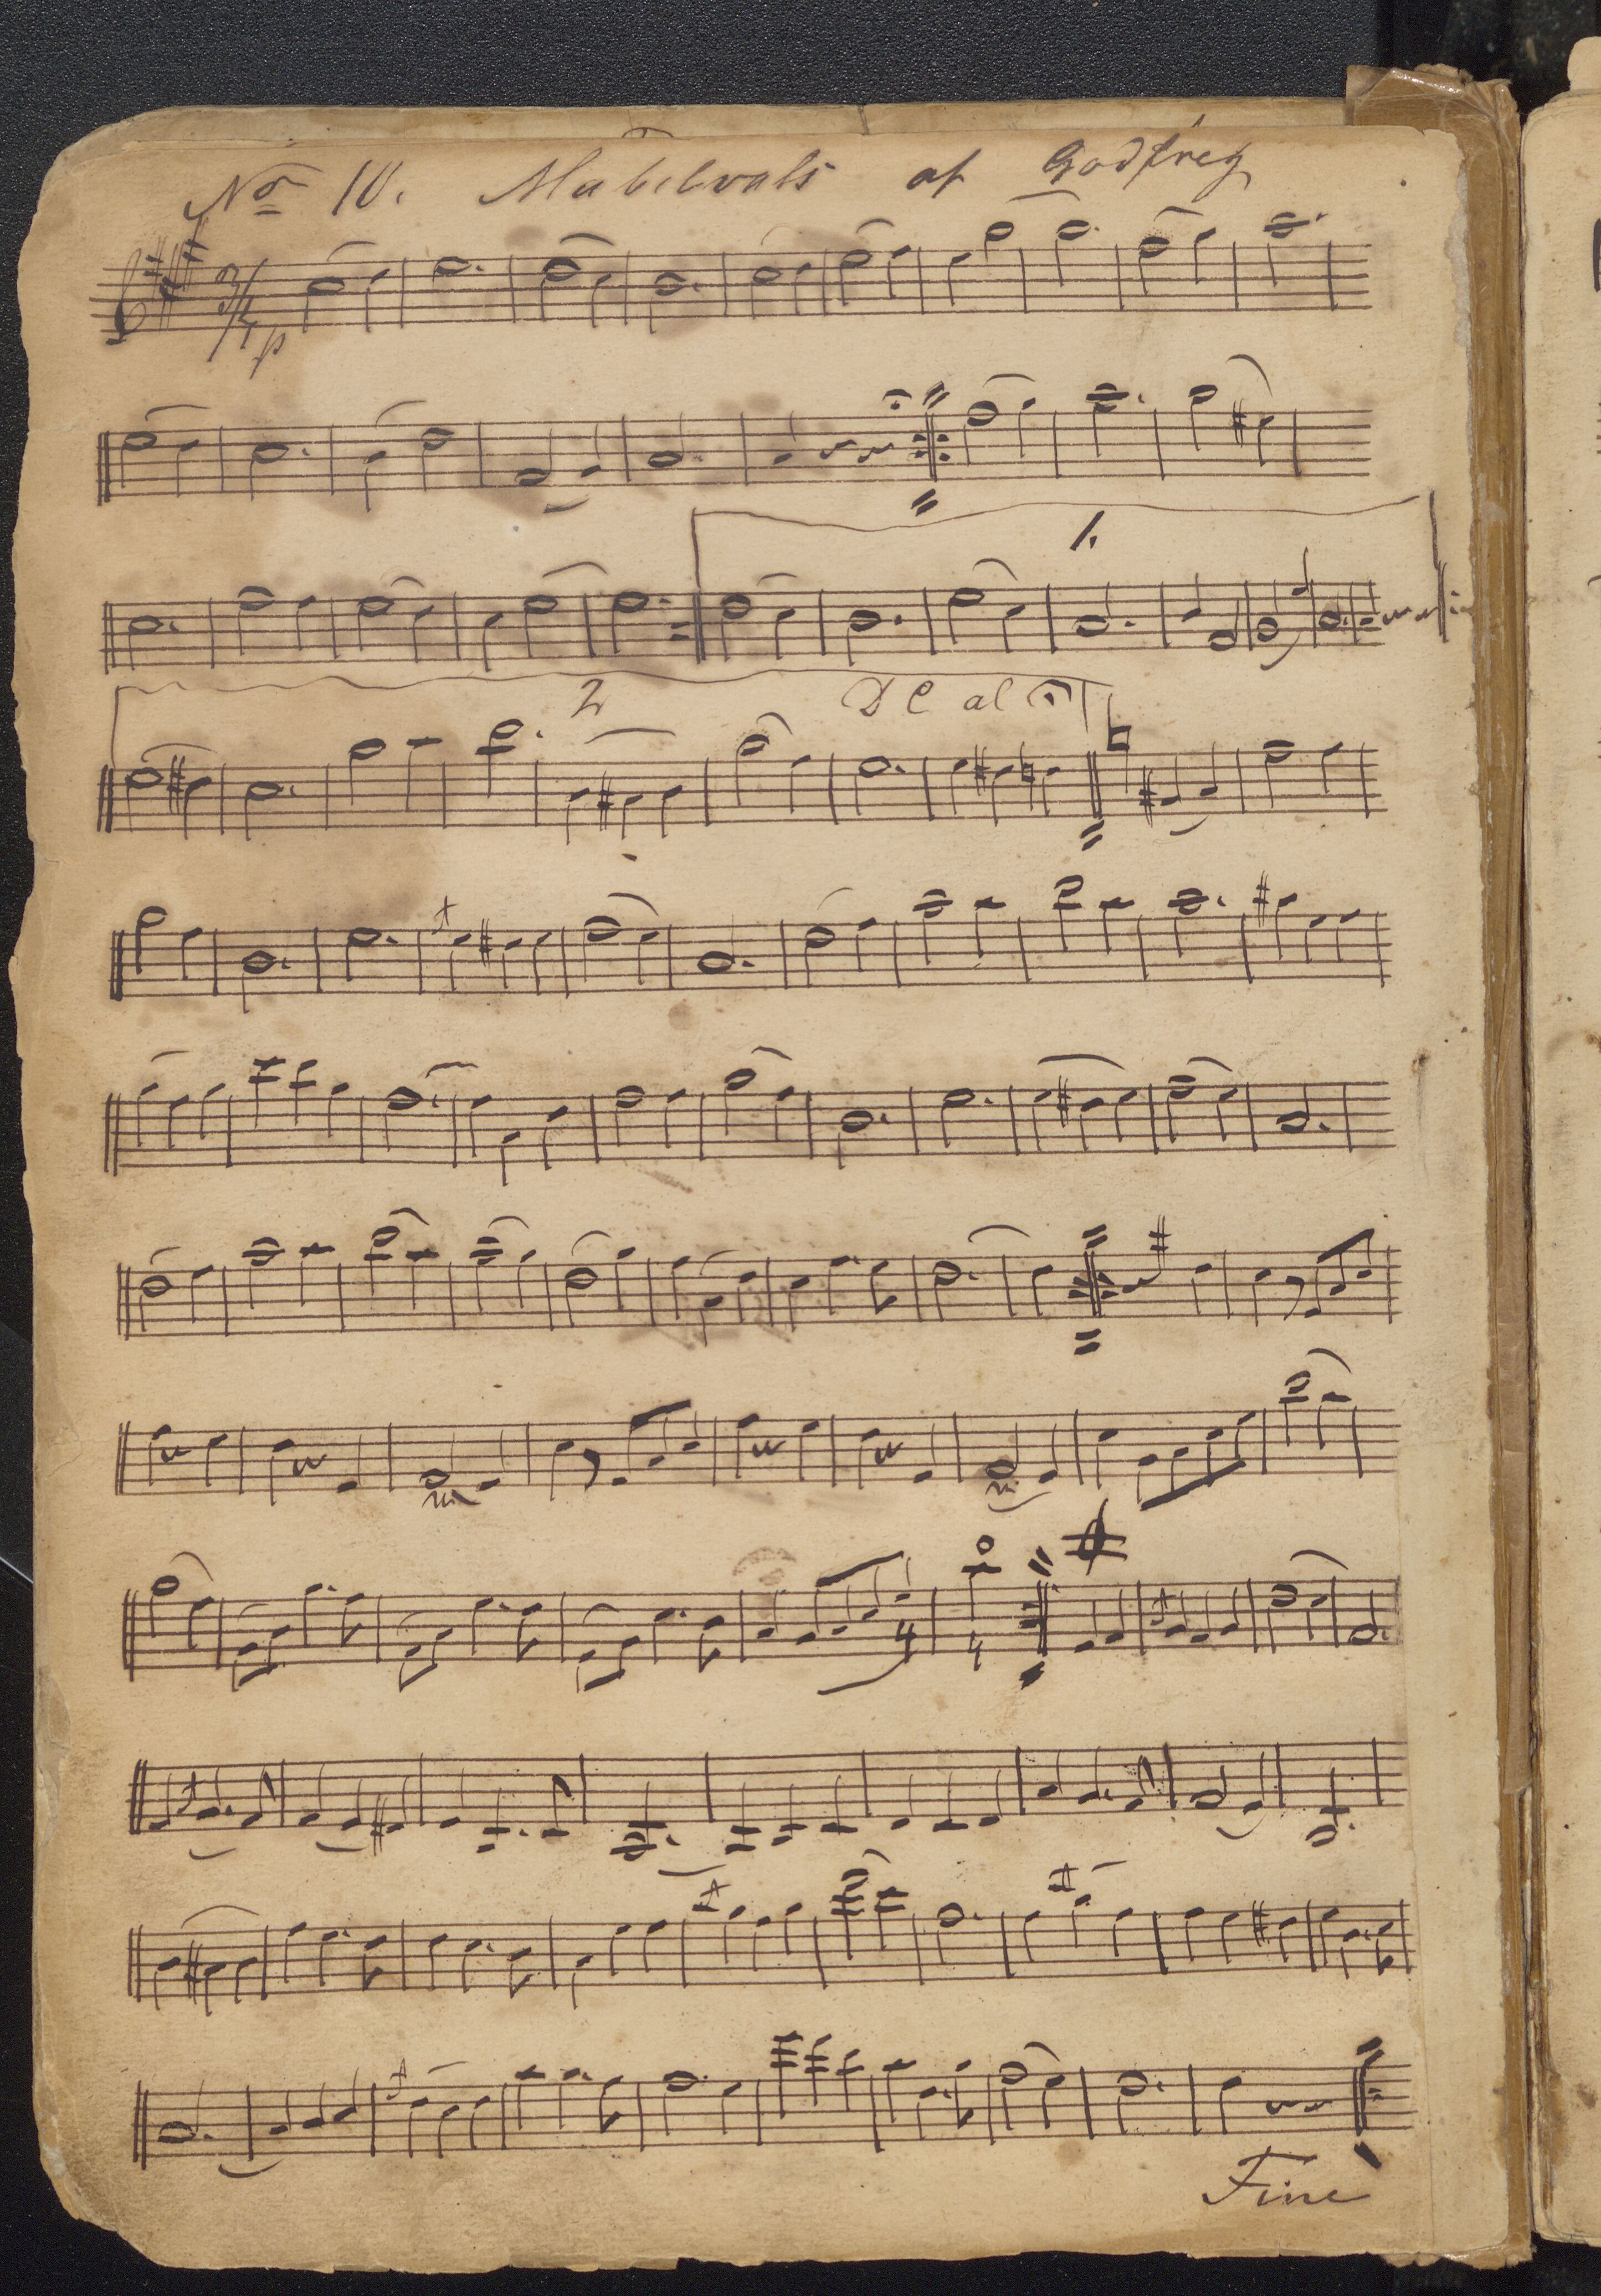 No 10. Mabelvals af Godfrey
3/4
p
1.
2
D C al
4 4
Fine